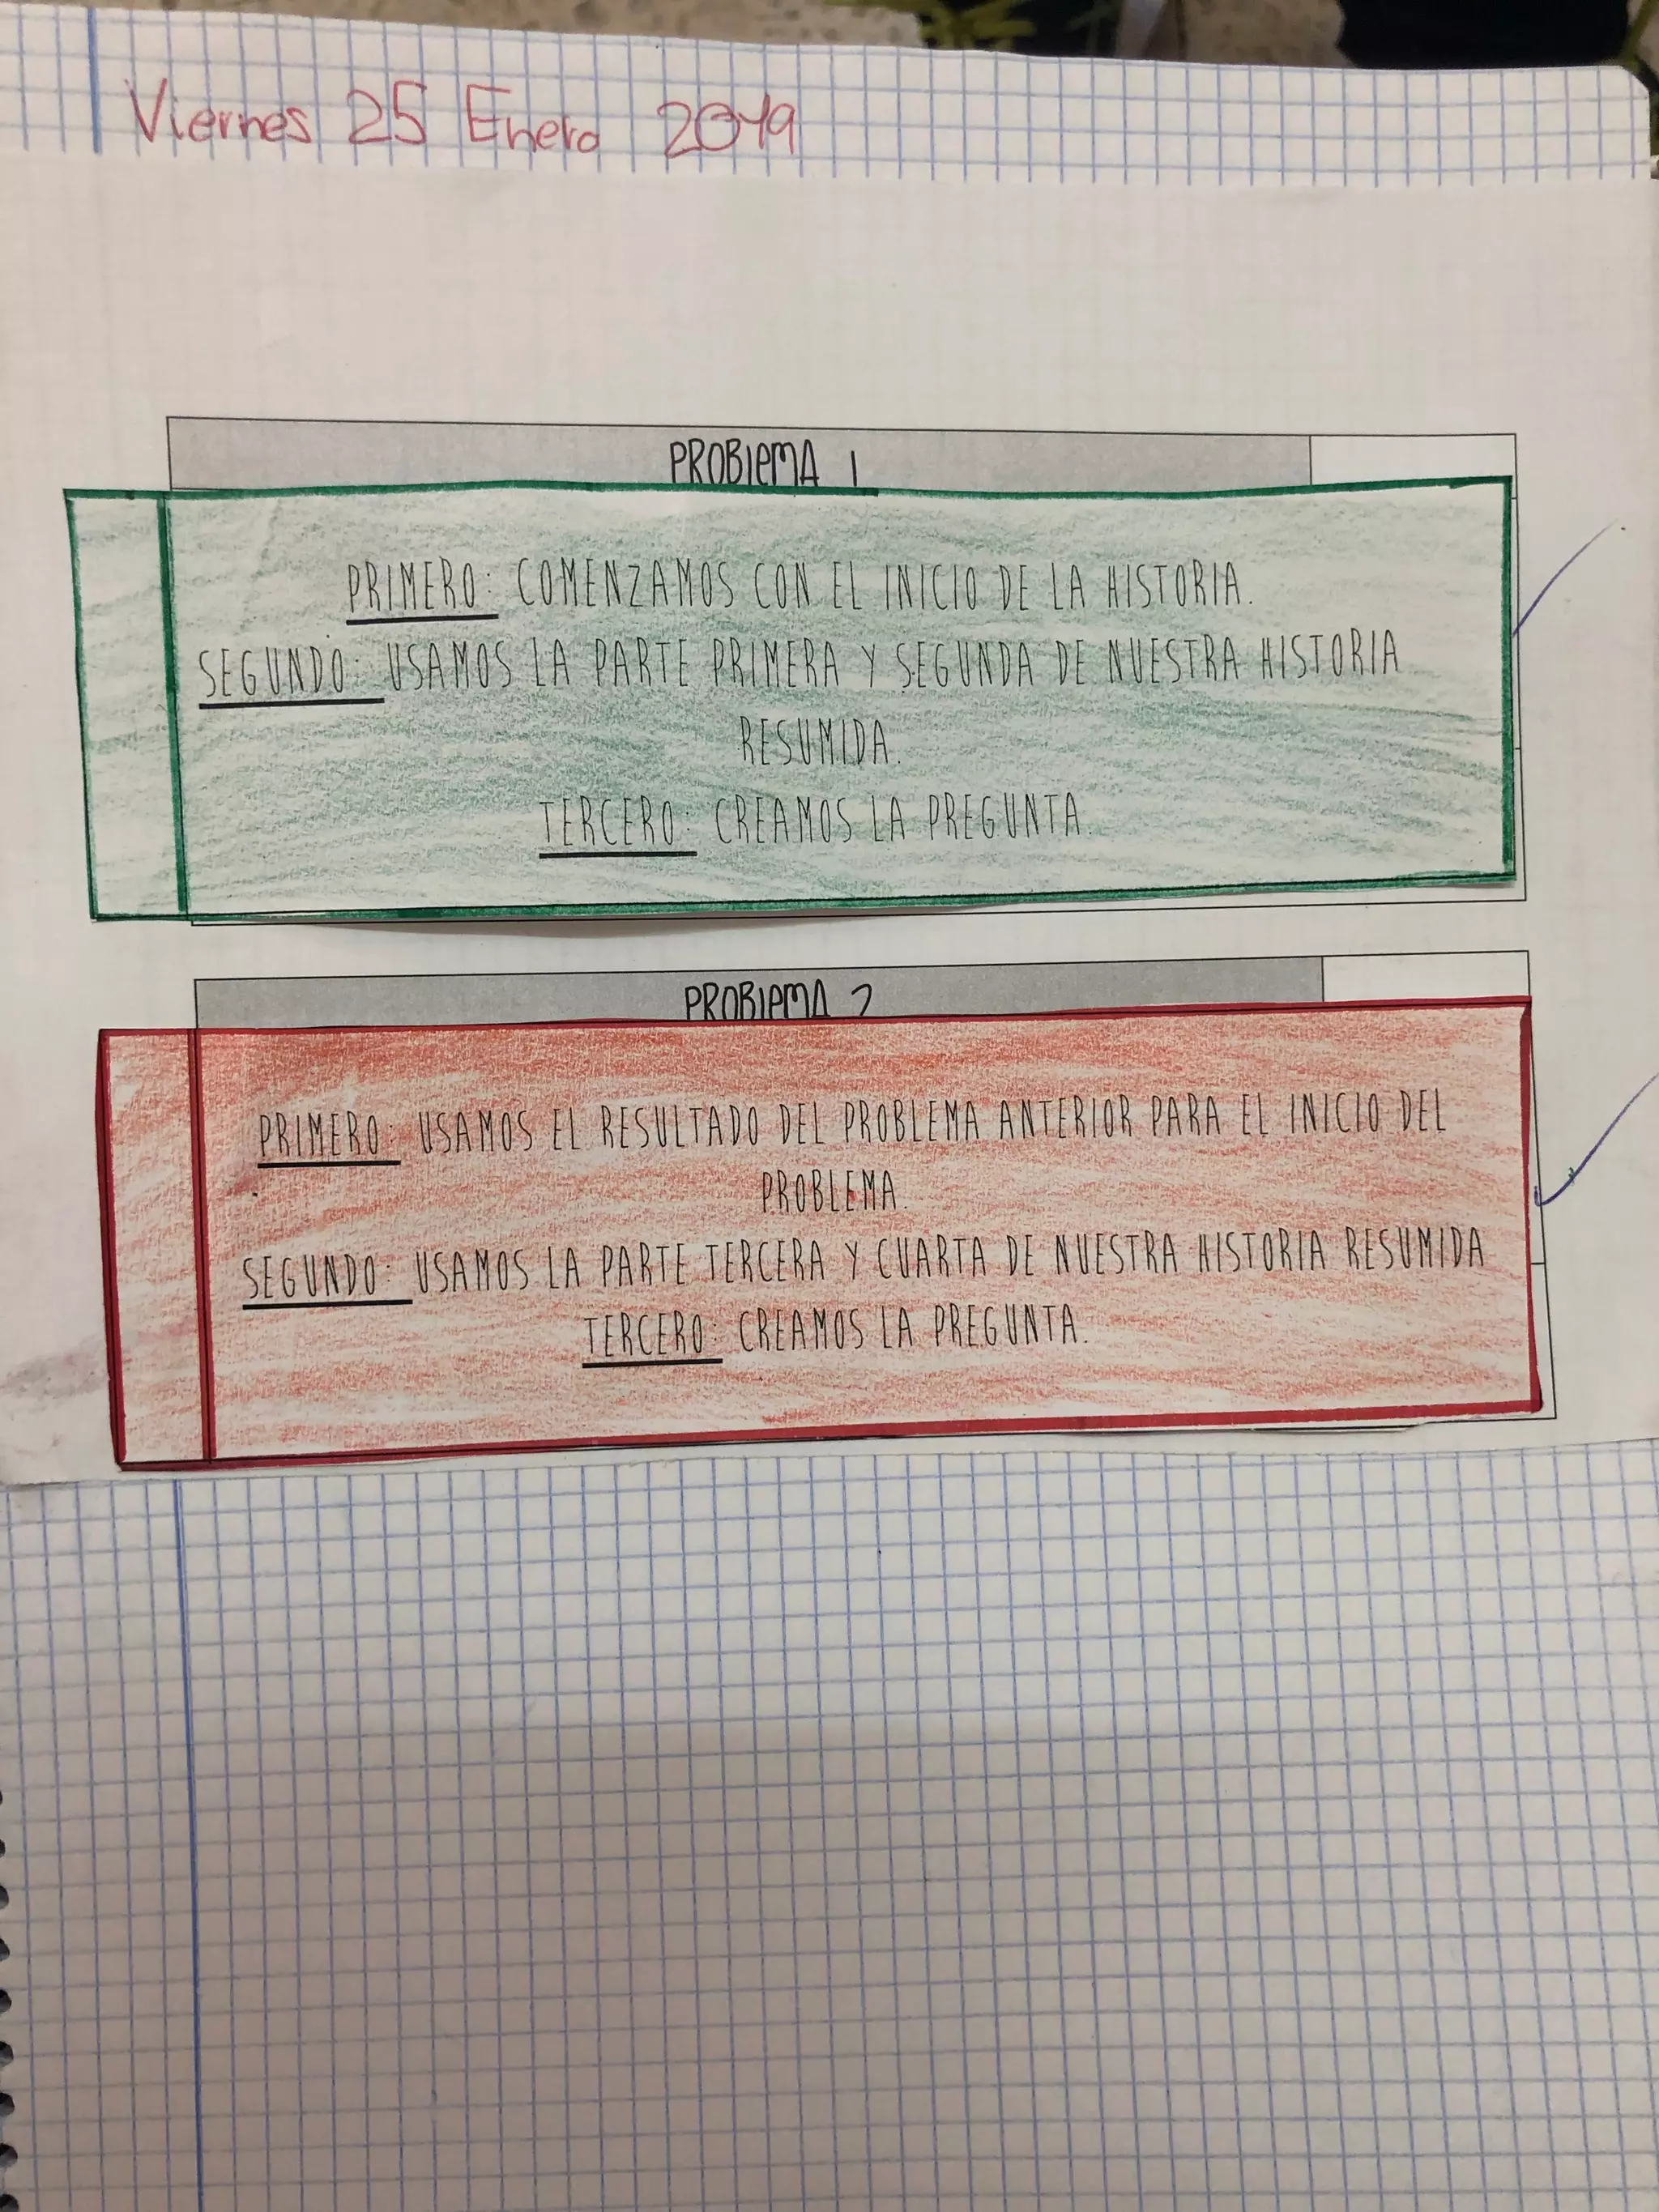 Viernes 25 Enero 2019
PROBlEMA 1
PRIMERO: COMENZAMOS CON EL INICIO DE LA HISTORIA.
SEGUNDO: USAMOS LA PARTE PRIMERA Y SEGUNDA DE NUESTRA HISTORIA
RESUMIDA.
TERCERO: CREAMOS LA PREGUNTA.
PROBlEMA 2
PRIMERO: USAMOS EL RESULTADO DEL PROBLEMA ANTERIOR PARA EL INICIO DEL
PROBLEMA.
SEGUNDO: USAMOS LA PARTE TERCERA Y CUARTA DE NUESTRA HISTORIA RESUMIDA
TERCERO: CREAMOS LA PREGUNTA.